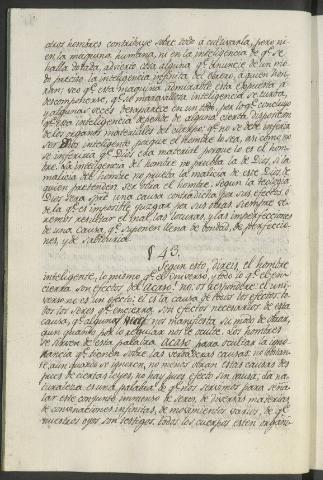 otros hombres contribuye sobre todo á cultivarla, pero ni
en la maquina humana, ni en la inteligencia de qe. se
halla dotada, advierto cosa alguna qe. anuncie de un mo-
do preciso la inteligencia infinita del obrero, á quien hon-
ran; veo qe. esta maquina admirable está expuesta á
descomponerse, qe. su maravillosa inteligencia se turba,
y algunas veces desaparece en un todo, por lo qe. concluyo
qe. esta inteligencia depende de alguna cierta disposicion
de los organos materiales del cuerpo; qe. no se debe inferir
ser Dios inteligente porque el hombre lo sea, asi como no
se inferiria qe. Dios era material porque lo es el hom-
bre. La inteligencia del hombre no prueba la de Dios, si la
malicia del hombre no prueba la malicia de este Dios de
quien pretenden ser obra el hombre. Segun la teologia
Dios será spre. una causa contradicha por sus efectos, ó
de la qe. es imposible juzgar por sus obras. Siempre ve-
remos resultar el mal, las locuras, y las imperfecciones
de una causa, qe. suponen llena de bondad, de perfeccio-
nes y de sabiduria.
§ 43.
Segun esto, direis, el hombre
inteligente, lo mismo qe. el universo, y todo lo qe. él en-
cierra son efectos del acaso? no: os responderé: el uni-
verso no es un efecto: él es la causa de todos los efectos. to-
dos los seres qe. encierra son efectos necesarios de esta
causa, qe. algunas veces nos manifiesta su modo de obrar,
aun quando por lo regular nos le oculte. Los hombres
se sirven de esta palabra acaso para ocultar la igno-
rancia qe. tienen sobre las verdaderas causas: no obstan-
te, aun quando se ignoren, no menos obran estas causas des-
pues de ciertas leyes, no hay pues efecto sin causa: la na-
turaleza es una palabra de qe. nos servimos para seña-
lar este conjunto inmenso de seres, de diversas materias,
de convinaciones infinitas, de movimientos varios, de qe.
nuestros ojos son testigos. todos los cuerpos esten organi-